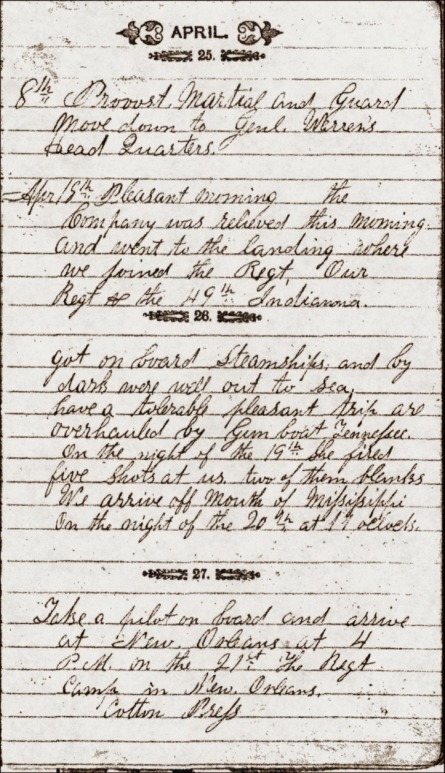 APRIL.
25.
8th Provost Martial and Guard
Move down to Genl. Warren's
Head Quarters.
Apr 18th Pleasant morning the
Company was relieved this morning
and went to the landing where
we joined the Regt, Our
Regt & the 49th Indianna.
26.
got on board Steamships, and by
dark were well out to sea,
have a tolerable pleasant trip are
overhauled by Gun boat Tennessee.
On the night of the 19th She fired
five shots at us, two of them blanks
We arrive off Mouth of Missisippi
On the night of the 20th at 11 oclock.
27.
Take a pilot on board and arrive
at New Orleans at 4
P.M. on the 21st The Regt
Camp in New Orleans.
Cotton Press